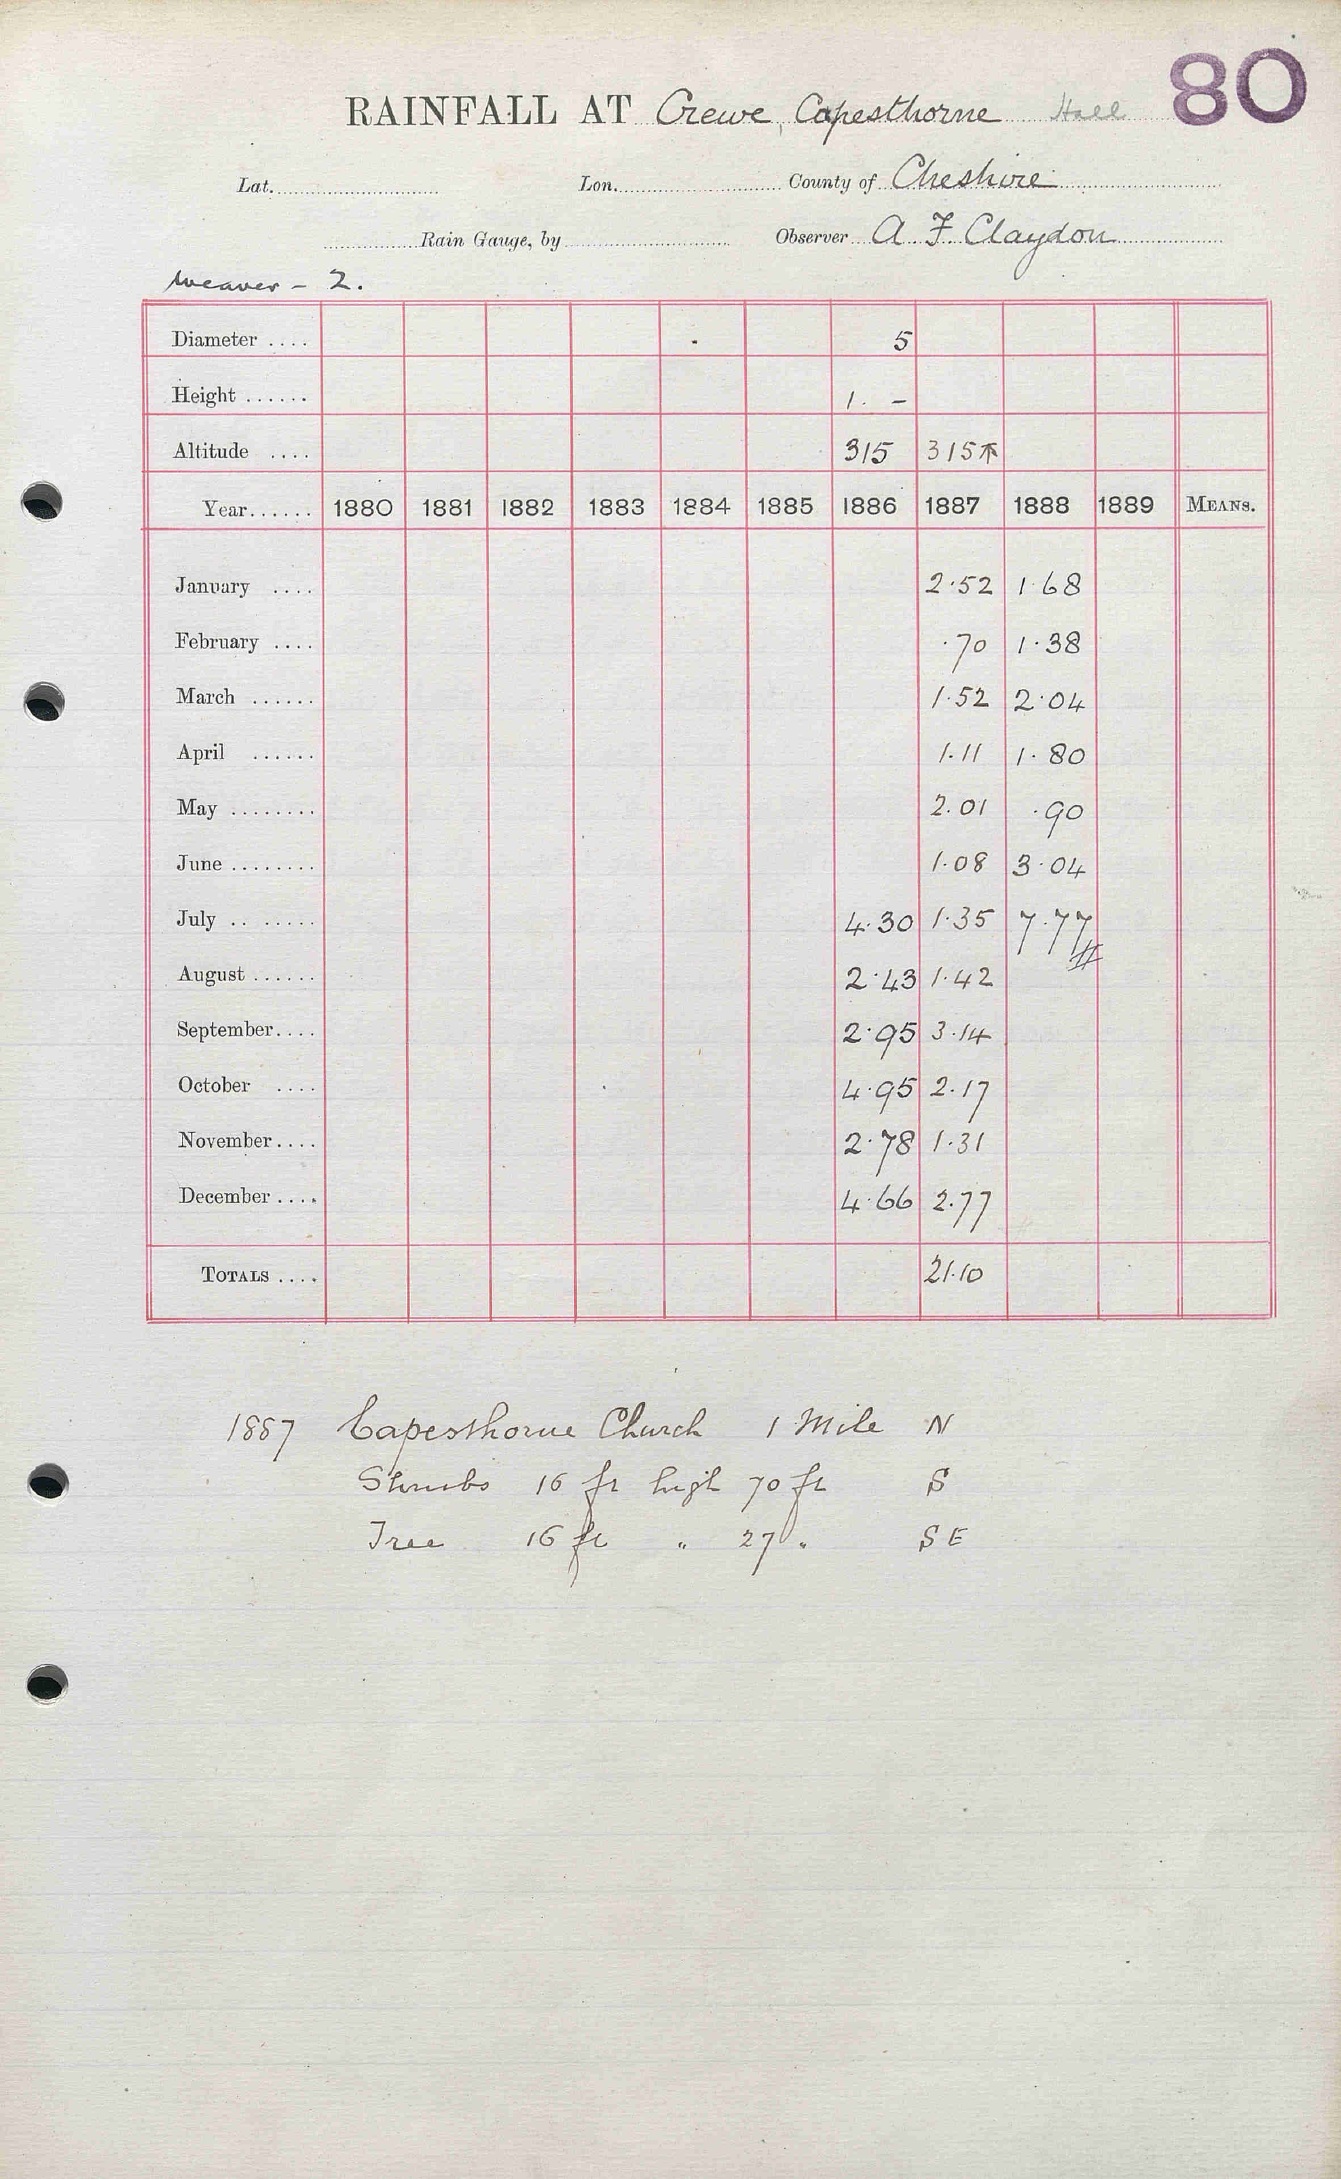 80
RAINFALL AT Crewe, Capesthorne Hall
Lat. Lon. County of Cheshire
Rain Gauge, by Observer A F Claydon
Weaver - 2.
Diameter .... 5
Height ...... 1. -
Altitude .... 315 315
Year...... 1880 1881 1882 1883 1884 1885 1886 1887 1888 1889 MEANS.
January .... 2.52 1.68
February .... .70 1.38
March ...... 1.52 2.04
April ...... 1.11 1.80
May ........ 2.01 .90
June ........ 1.08 3.04
July .. ...... 4.30 1.35 7.77
August ...... 2.43 1.42
September.... 2.95 3.14
October .... 4.95 2.17
November.... 2.78 1.31
December .... 4.66 2.77
TOTALS .... 21.10
1887 Capesthorne Church 1 Mile N
Shrubs 16 ft high 70 ft S
Tree 16 ft " 27 " SE